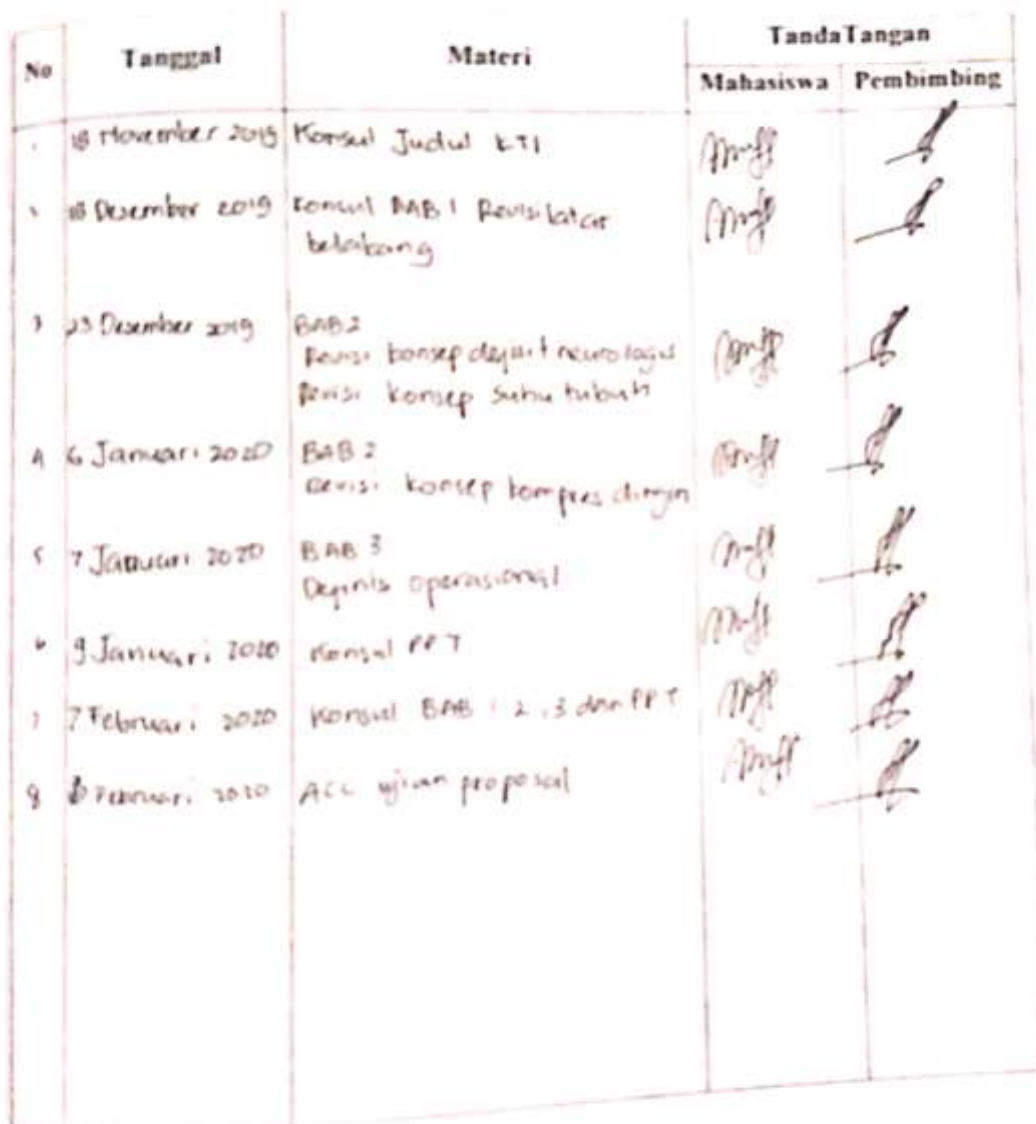 No Tanggal Materi TandaTangan
Mahasiswa Pembimbing
18 November 2019 Konsul Judul KTI
18 Desember 2019 Konsul BAB 1 Revisi latar
belakang
3 23 Desember 2019 BAB 2
Revisi konsep defisit neurologis
Revisi konsep suhu tubuh
4 6 Januari 2020 BAB 2
Revisi konsep kompres dingin
5 7 Januari 2020 BAB 3
Definis operasional
6 9 Januari 2020 Konsul PPT
7 7 Februari 2020 Konsul BAB 1 2 . 3 dan PPT
8 Februari 2020 ACC ujian proposal